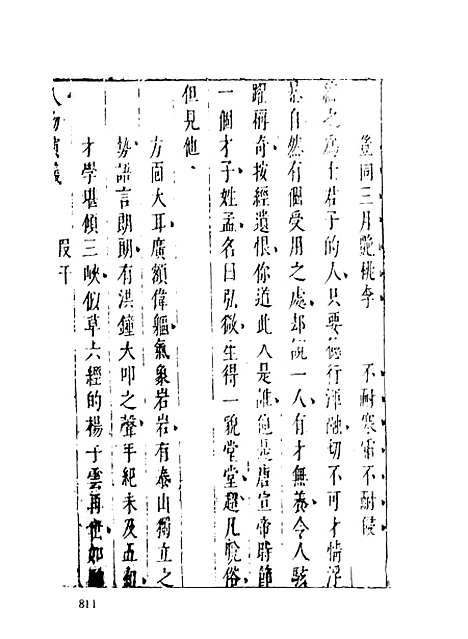 豈同三月艷桃李　不耐寒霜不耐侵
之為士君子的人只要德行渾融切不可才情浮
自然有個受用之處却説一人有才無養令人駭
躍稱奇按經遺恨你道此人是誰他是唐宣帝時節
一個才子姓孟名曰弘微生得一貌堂堂超凡脫俗
但見他
方面大耳廣額偉軀氣象岩岩有泰山獨立之
勢語言朗朗有洪鐘大叩之聲年紀未及五旬
才學堪傾三峽似草六經的楊子雲再世如
演義
811